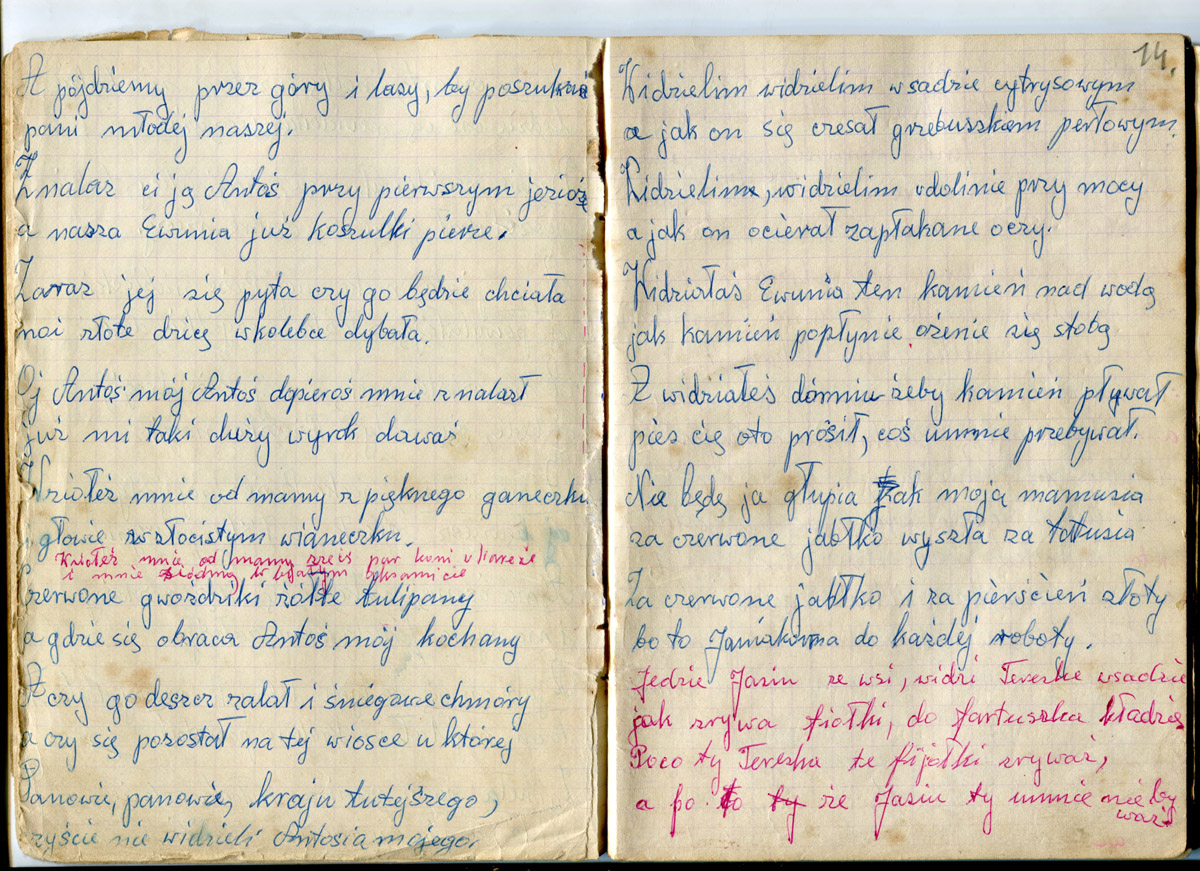 A pójdziemy przez góry i lasy, by poszukać
pani młodej naszej.
Znalaz ci ją Antoś przy pierwszym jezioż
a nasza Ewunia już koszulki pierze.
Zaraz jej się pyta czy go będzie chciała
noi złote dzicę wkolebce dybała.
Oj Antoś mój Antoś dopieroś mnie znalazł
już mi taki duży wyrok dawaś
Wziołeż mnie od mamy z pięknego ganeczku
głowie wzłocistym wianeczku.
Wziełeż mnie od mamy sześ par koni
i mnie siódmą w białym aksamicie
czerwone gwoździki żółte tulipany
a gdzie się obraca Antoś mój kochany
A czy go deszcz zalał i śniegawe chmóry
a czy się pozostał na tej wiosce u której
Panowie, panowie, kraju tutejszego,
czyście nie widzieli Antosia mojego.
14.
Widzielim widzielim wsadzie cytrysowym
a jak on się czesał grzebuszkem perłowym.
Widzielim, widzielim vdolinie przy mocy
a jak on ocierał zapłakane oczy.
Widziałaś Ewunia ten kamień nad wodą
jak kamień popłynie ożenie się stobą
A widziałeś dómniu żeby kamień pływał
pies cię oto prósił, coś umnie przebywał.
Nie będę ja głupia jak moja mamusia
za czerwone jabłko wyszła za tatusia
Za czerwone jabłko i za pierścień złoty
bo to Janiakowna do każdej roboty.
Jedzie Jasiu ze wsi, widzi Tereske wsadzie
jak zrywa fiołki, do fartuszka kładzie
Poco ty Tereska te fijałki zryważ,
a po to ty że Jasiu ty umnie nie by
waż